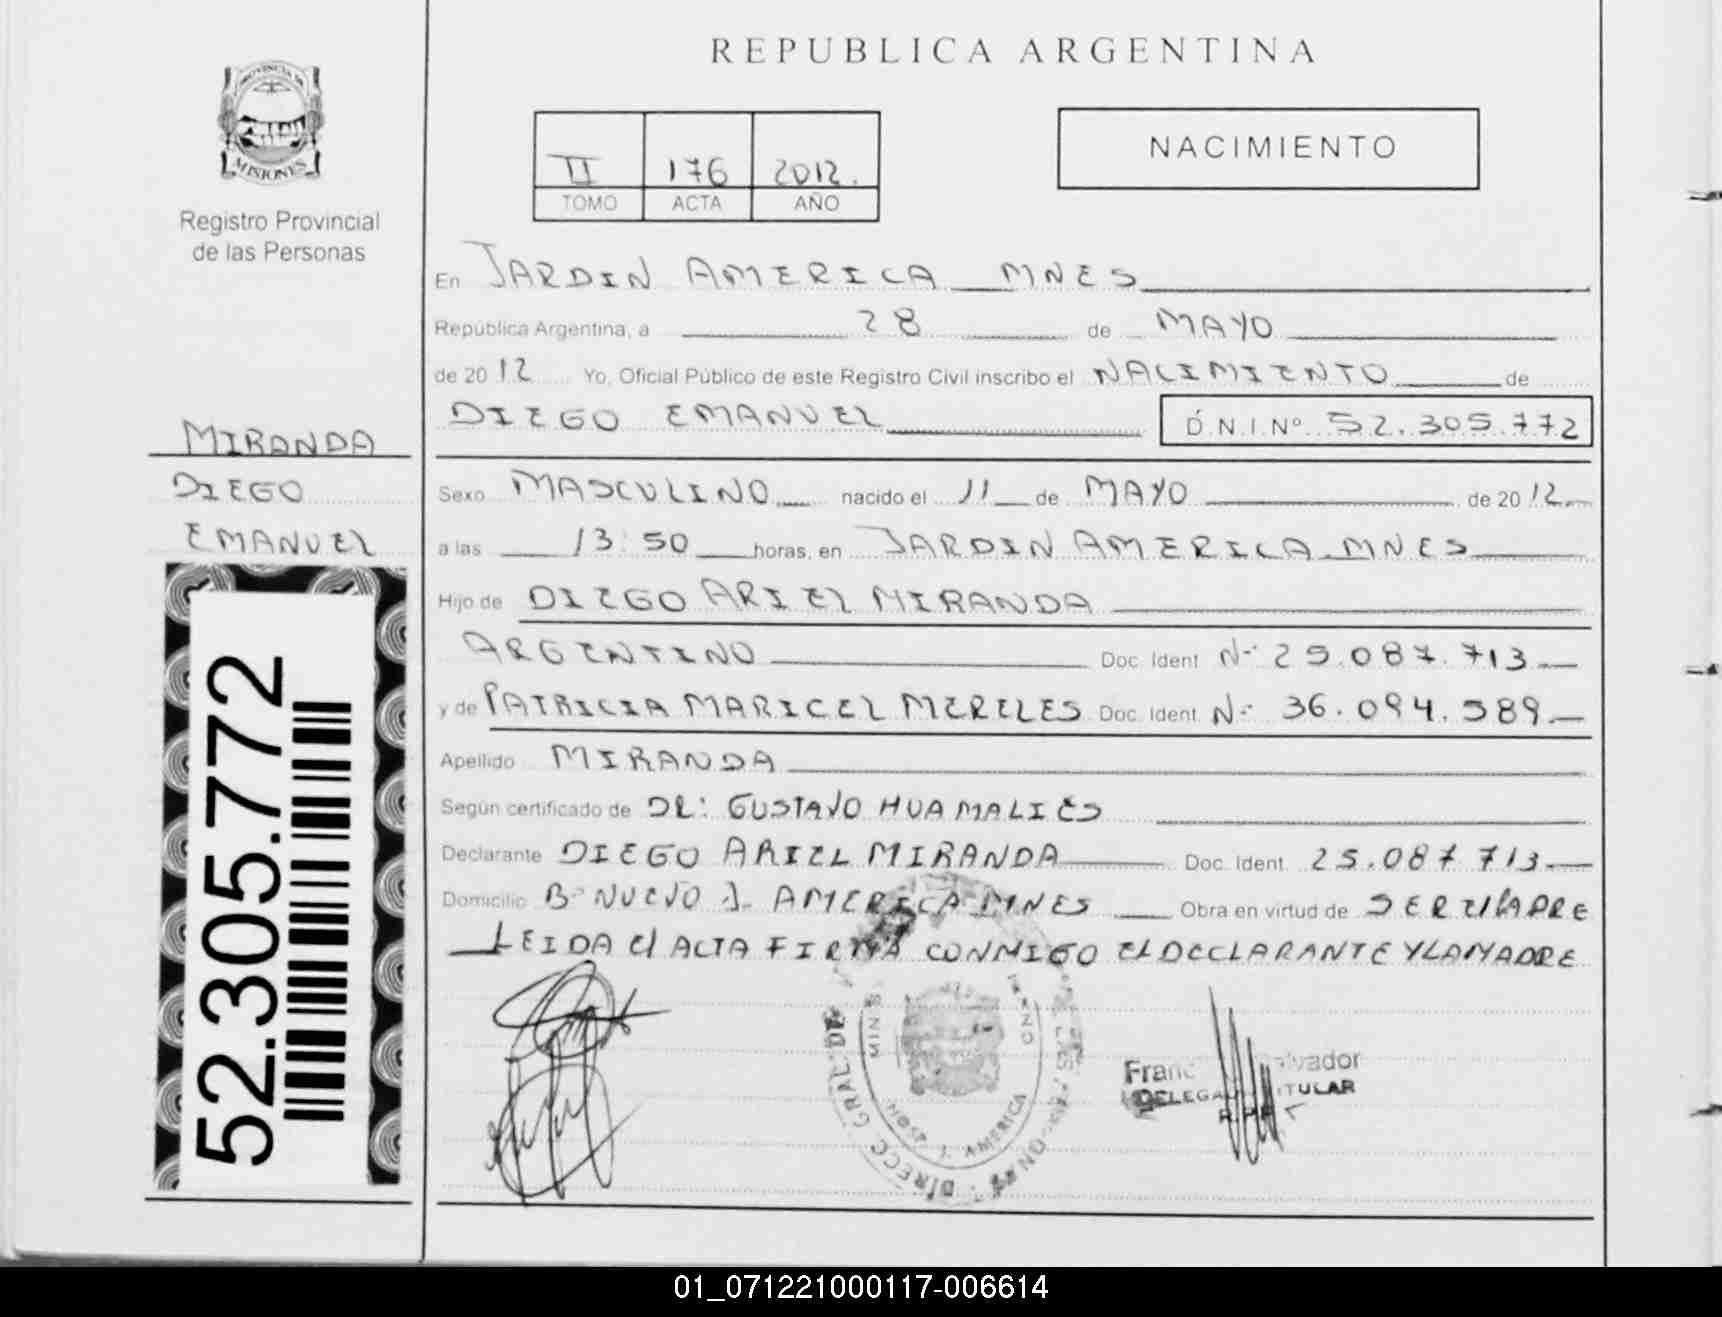 REPUBLICA ARGENTINA
PROVINCIA DE
MISIONES
Registro Provincial
de las Personas
NACIMIENTO
II 176 2012.
TOMO ACTA AÑO
En JARDIN AMERICA MNES
República Argentina, a 28 de MAYO
de 2012 Yo, Oficial Público de este Registro Civil inscribo el NACIMIENTO de
DIEGO EMANUEL D.N.I.Nº 52.305.772
MIRANDA
DIEGO
EMANUEL
Sexo MASCULINO nacido el 11 de MAYO de 2012
a las 13:50 horas, en JARDIN AMERICA MNES
Hijo de DIEGO ARIEL MIRANDA
ARGENTINO Doc. Ident. Nº 25.087.713
y de PATRICIA MARICEL MERELES Doc. Ident. Nº 36.094.589
Apellido MIRANDA
Según certificado de DR: GUSTAVO HUAMALIES
Declarante DIEGO ARIEL MIRANDA Doc. Ident. 25.087.713
Domicilio Bº NUEVO J. AMERICA MNES Obra en virtud de SER EL PADRE
LEIDA El ACTA FIRMA CONMIGO El DECLARANTE Y LA MADRE
52.305.772
DIRECC. GRAL DE
J. AMERICA
DELEGA TITULAR
01_071221000117-006614